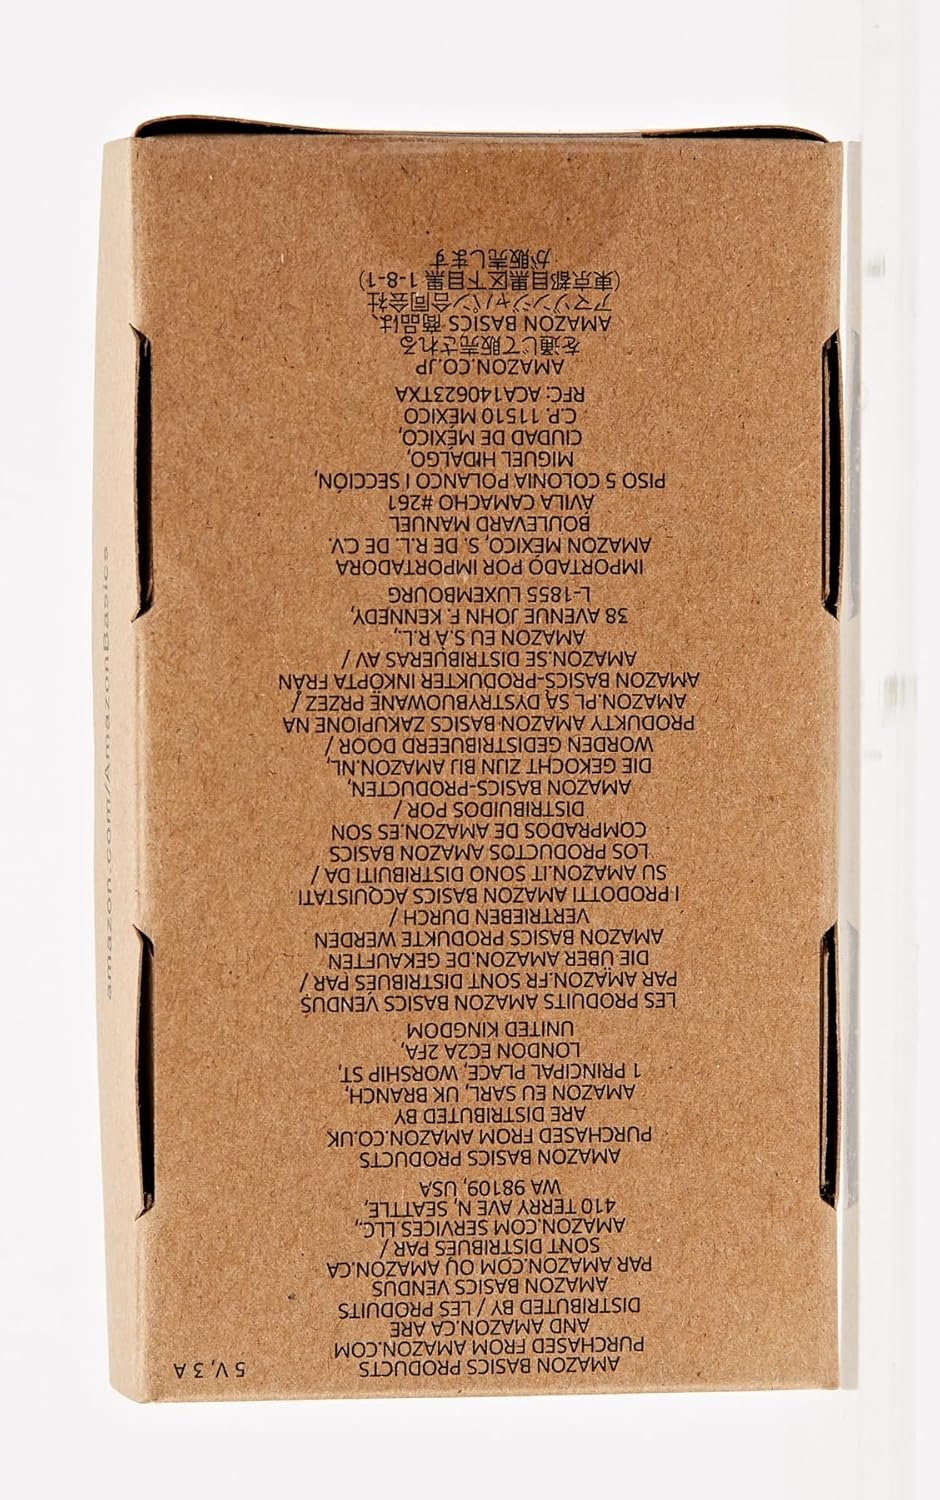 5V, 3 A
AMAZON BASICS PRODUCTS
PURCHASED FROM AMAZON.COM
AND AMAZON.CA ARE
DISTRIBUTED BY / LES PRODUITS
AMAZON BASICS VENDUS
PAR AMAZON.COM OU AMAZON.CA
SONT DISTRIBUES PAR /
AMAZON.COM SERVICES LLC.,
410 TERRY AVE N, SEATTLE,
WA 98109, USA
AMAZON BASICS PRODUCTS
PURCHASED FROM AMAZON.CO.UK
ARE DISTRIBUTED BY
AMAZON EU SARL, UK BRANCH,
1 PRINCIPAL PLACE, WORSHIP ST,
LONDON EC2A 2FA,
UNITED KINGDOM
LES PRODUITS AMAZON BASICS VENDUS
PAR AMAZON.FR SONT DISTRIBUES PAR /
DIE ÜBER AMAZON.DE GEKAUFTEN
AMAZON BASICS PRODUKTE WERDEN
VERTRIEBEN DURCH /
I PRODOTTI AMAZON BASICS ACQUISTATI
SU AMAZON.IT SONO DISTRIBUITI DA /
LOS PRODUCTOS AMAZON BASICS
COMPRADOS DE AMAZON.ES SON
DISTRIBUIDOS POR /
AMAZON BASICS-PRODUCTEN,
DIE GEKOCHT ZIJN BIJ AMAZON.NL,
WORDEN GEDISTRIBUEERD DOOR /
PRODUKTY AMAZON BASICS ZAKUPIONE NA
AMAZON.PL SĄ DYSTRYBUOWANE PRZEZ /
AMAZON BASICS-PRODUKTER INKÖPTA FRÅN
AMAZON.SE DISTRIBUERAS AV /
AMAZON EU S.A R.L.,
38 AVENUE JOHN F. KENNEDY,
L-1855 LUXEMBOURG
IMPORTADO POR IMPORTADORA
AMAZON MÉXICO, S. DE R.L. DE C.V.
BOULEVARD MANUEL
ÁVILA CAMACHO #261
PISO 5 COLONIA POLANCO I SECCIÓN,
MIGUEL HIDALGO,
CIUDAD DE MÉXICO,
C.P. 11510 MÉXICO
RFC: ACA140623TXA
AMAZON.CO.JP
を通じて販売される
AMAZON BASICS 商品は、
アマゾンジャパン合同会社
(東京都目黒区下目黒 1-8-1)
が販売します
amazon.com/AmazonBasics